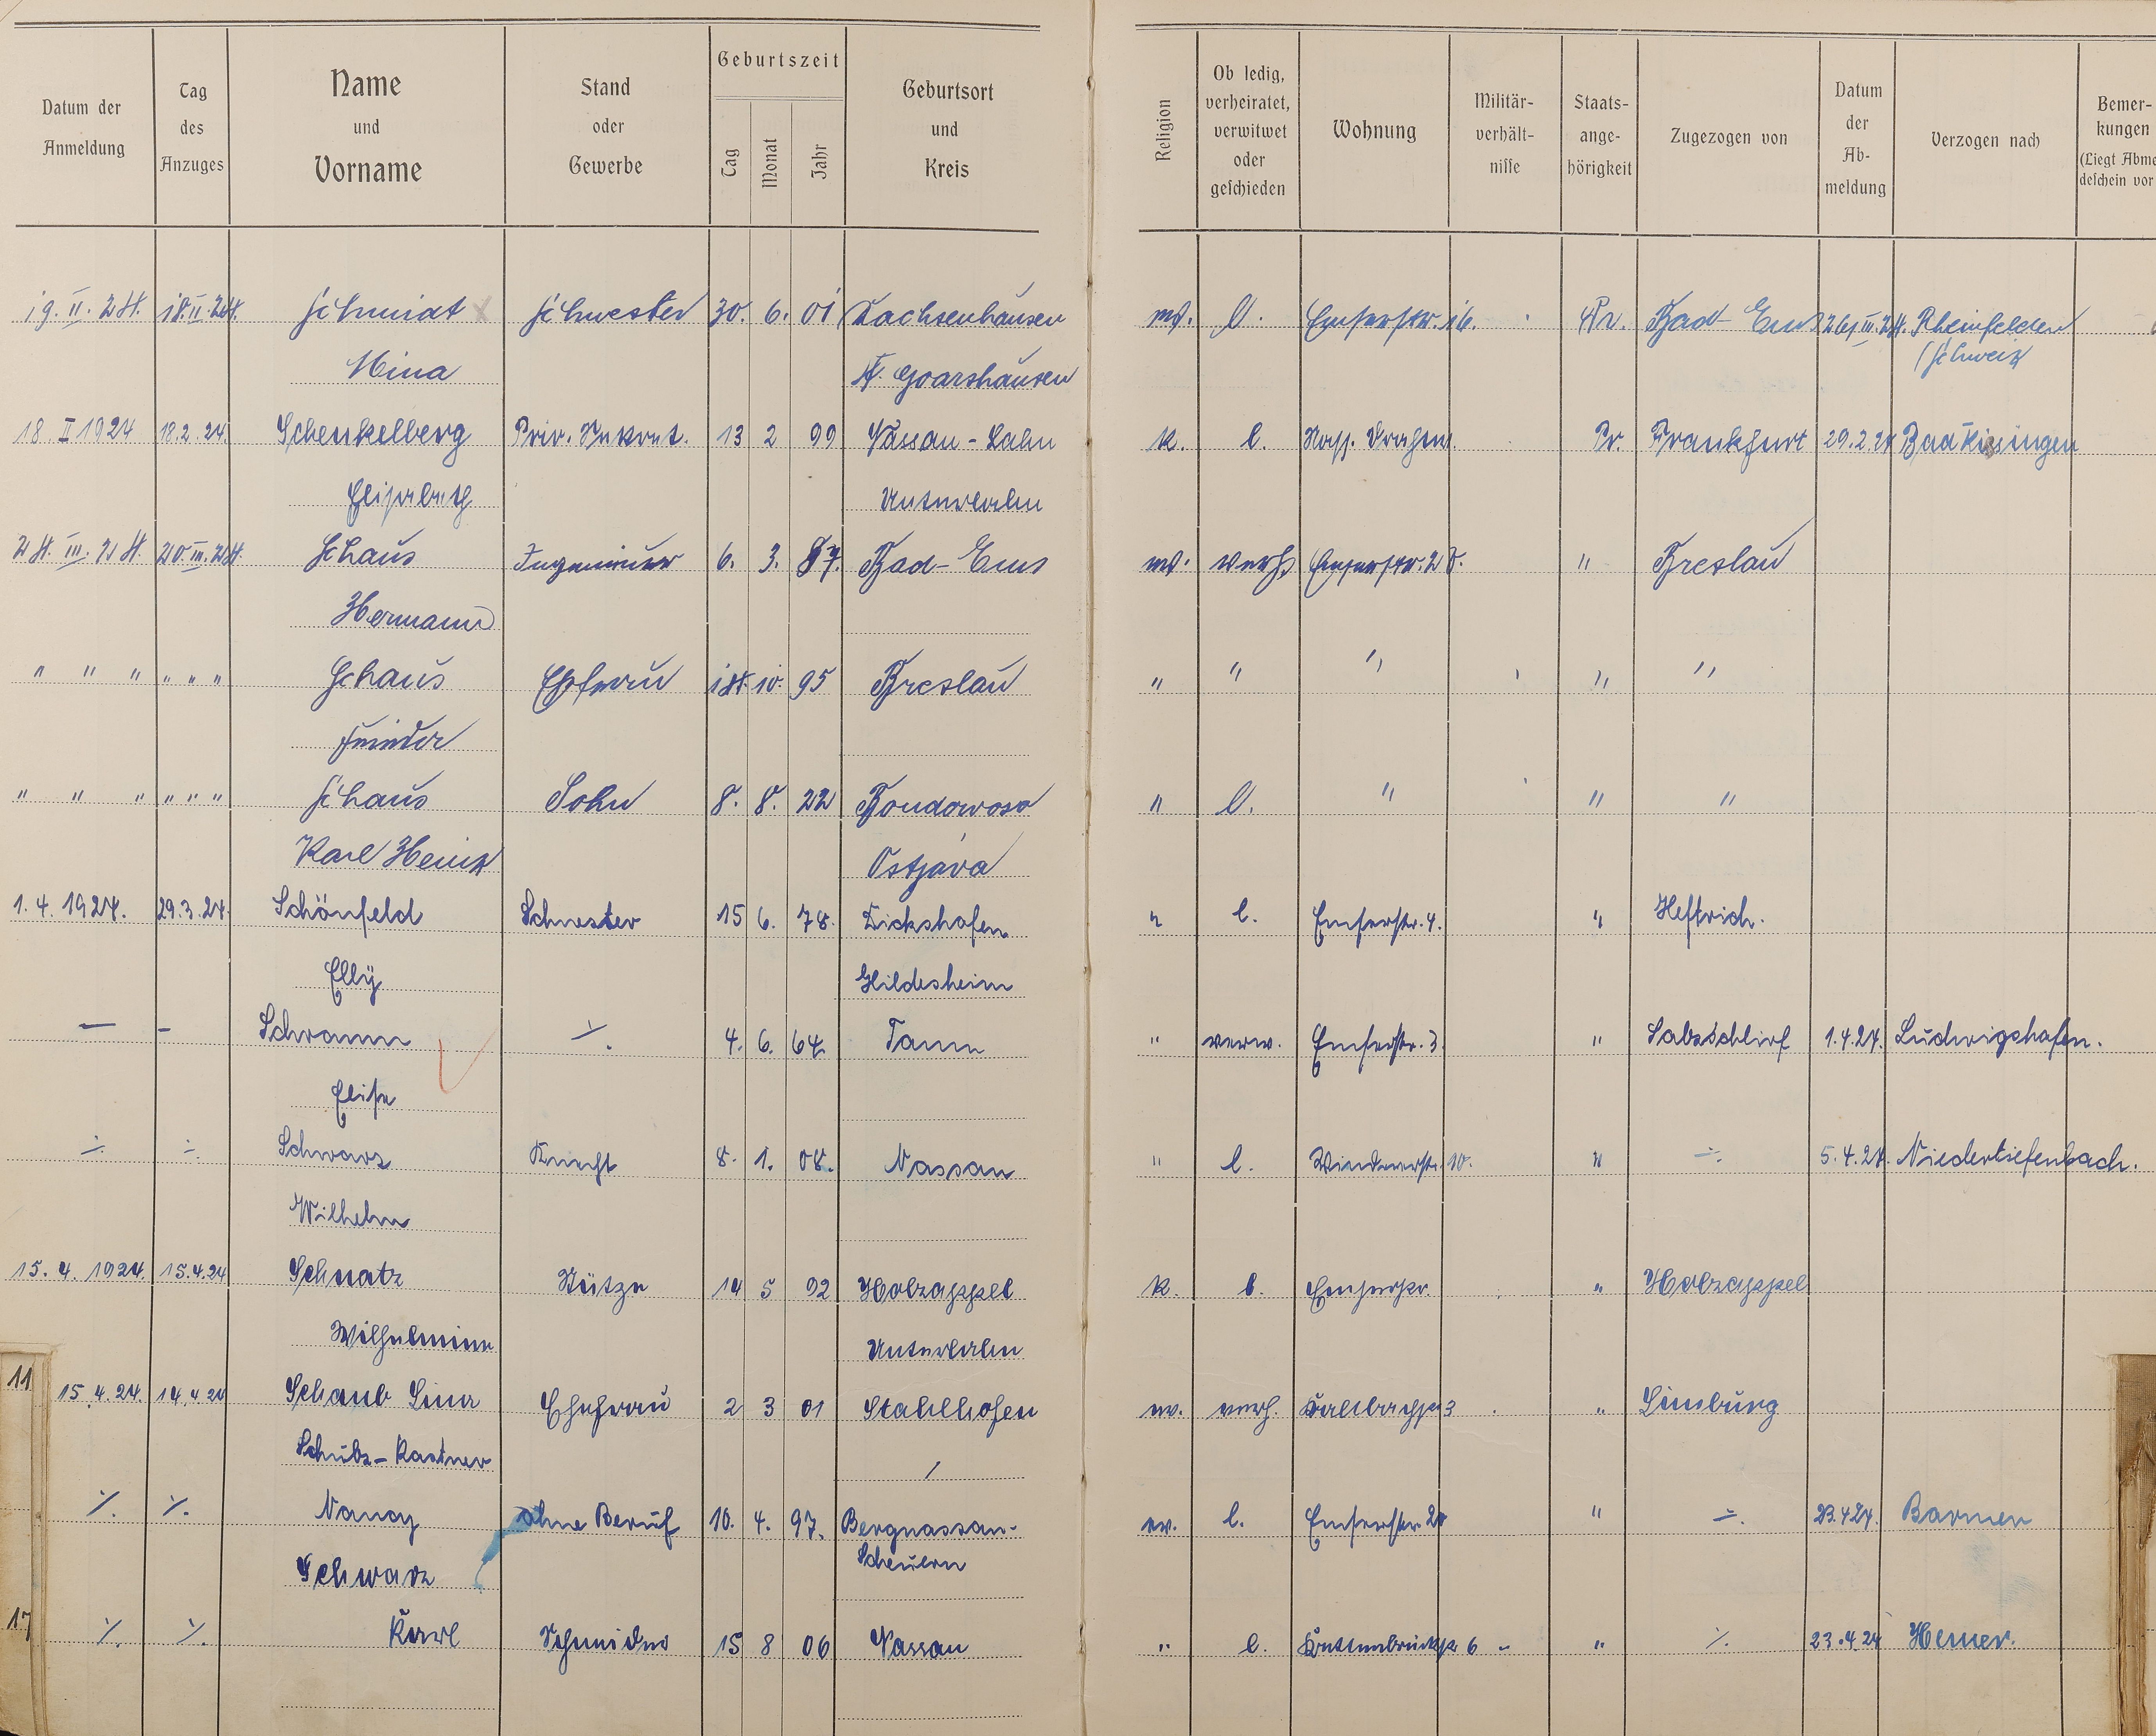 Datum der Anmeldung
Tag des Anzuges
Name und Vorname
Stand oder Gewerbe
Geburtszeit
Tag Monat Jahr
Geburtsort und Kreis
Religion
Ob ledig, verheiratet, verwitwet oder geschieden
Wohnung
Militär-verhält-nisse
Staats-ange-hörigkeit
Zugezogen von
Datum der Ab-meldung
Verzogen nach
Bemer-kungen
(Liegt Abme
deschein vor
19. II. 24. 18. II. 24. Schmidt Schwester 30. 6. 01 Sachsenhausen ev. l. Emserstr. 16. Pr. Bad-Ems 26. III. 24. Rheinfelden
Mina St. Goarshausen (Schweiz
18. II 1924 18.2.24. Schenkelberg Priv. 13 2 99 Nassau-Lahn k. l. Pr. Frankfurt 29.2.24 Bad Kissingen
Elisabeth Unterlahn
24. III. 24. 20. III. 24. Schaus Ingenieur 6. 3. 87. Bad-Ems ev. verh. Emserstr. 28. " Breslau
Hermann
" " " " " " Schaus Ehefrau 14. 10. 95 Breslau " " " " "
" " " " " " Schaus Sohn 8. 8. 22 Bondowoso " l. " " "
Karl Heinz Ostjava
1. 4. 1924. 29.3.24. Schönfeld Schwester 15 6. 78. Dickshofen " l. Emserstr. 4. " Heftrich.
Elly Hildesheim
— – Schramm ./. 4. 6. 64. Tann " verw. Emserstr. 3. " Salzschlirf 1.4.24. Ludwigshafen.
Elise
./. ./. Schwarz Knecht 8. 1. 08. Nassau " l. Windenerstr. 10. " ./. 5.4.24. Niedertiefenbach.
Wilhelm
15. 4. 1924. 15.4.24 Schnatz Stütze 14 5 92 Holzappel k. l. Emserstr. " Holzappel
Wilhelmine Unterlahn
11
15.4.24. 14.4.24 Schaub Lina Ehefrau 2 3 01 Stahlhofen ev. verh. Kaltbachstr 3 " Limburg
Schulz-Kastner /
./. ./. Nancy ohne Beruf 10. 4. 97. Bergnassau- ev. l. Emserstr. " ./. 23.4.24. Barmen
Schwarz Scheuern
17
./. ./. Karl Schneider 15 8 06 Nassau " l. Kettenbrückstr. 6 " ./. 23.4.24 Hemer.